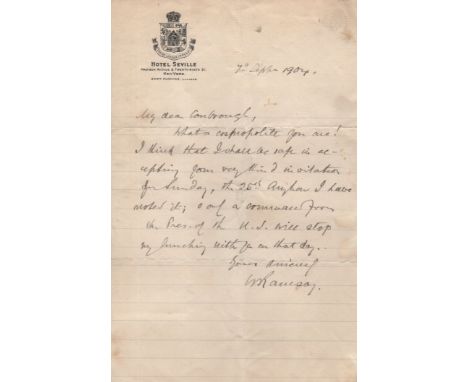 HOTEL SEVILLE
MADISON AVENUE & TWENTY-NINTH ST.
NEW YORK.
7th Septr 1904.
My dear
What a cosmopolite you are!
I think that I shall be safe in ac-
cepting your very kind invitation
for Sunday, the 25th. Anyhow I have
noted it; & only a command from
the Pres. of the U.S. will stop
my lunching with you on that day.
Yours sincerely
W Ramsay.